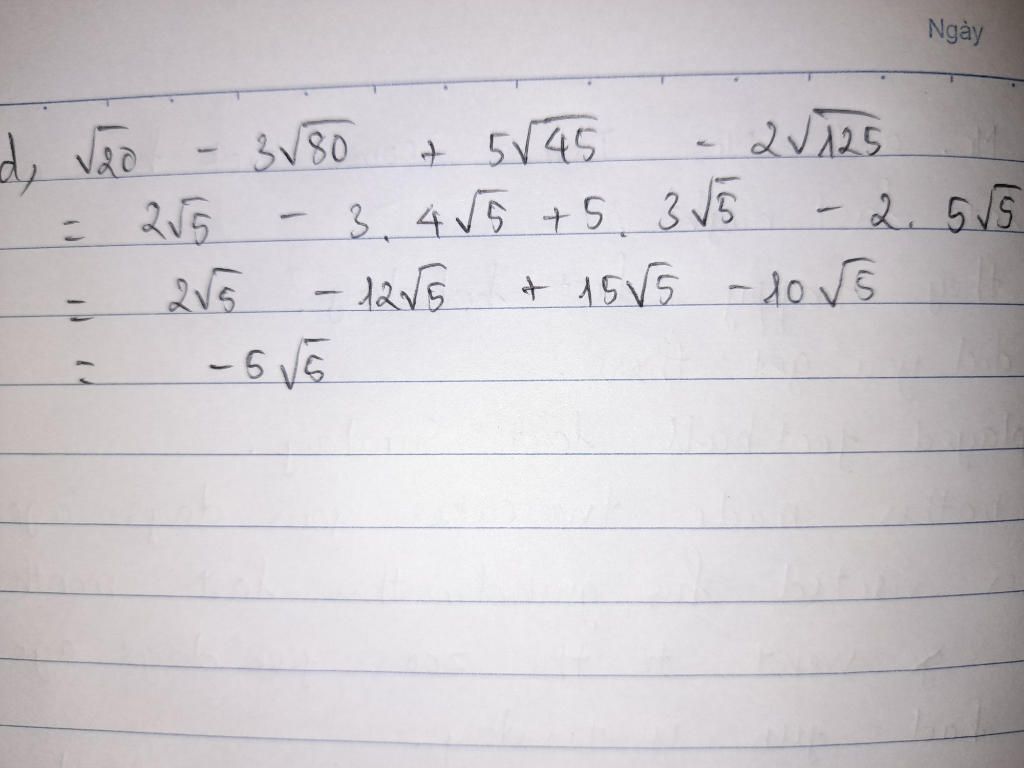 Ngày
d, √20 - 3√80 + 5√45 - 2√125
= 2√5 - 3.4√5 + 5.3√5 - 2.5√5
= 2√5 - 12√5 + 15√5 - 10√5
= -5√5